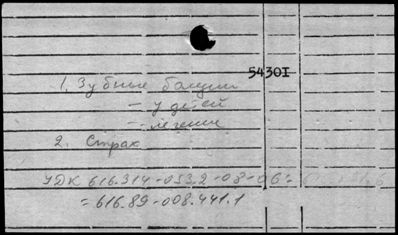 54301
1. Зубные
— у детей
— лечение
2. Страх
УДК 616.314-053.2-08-06:
=616.89-008.441.1